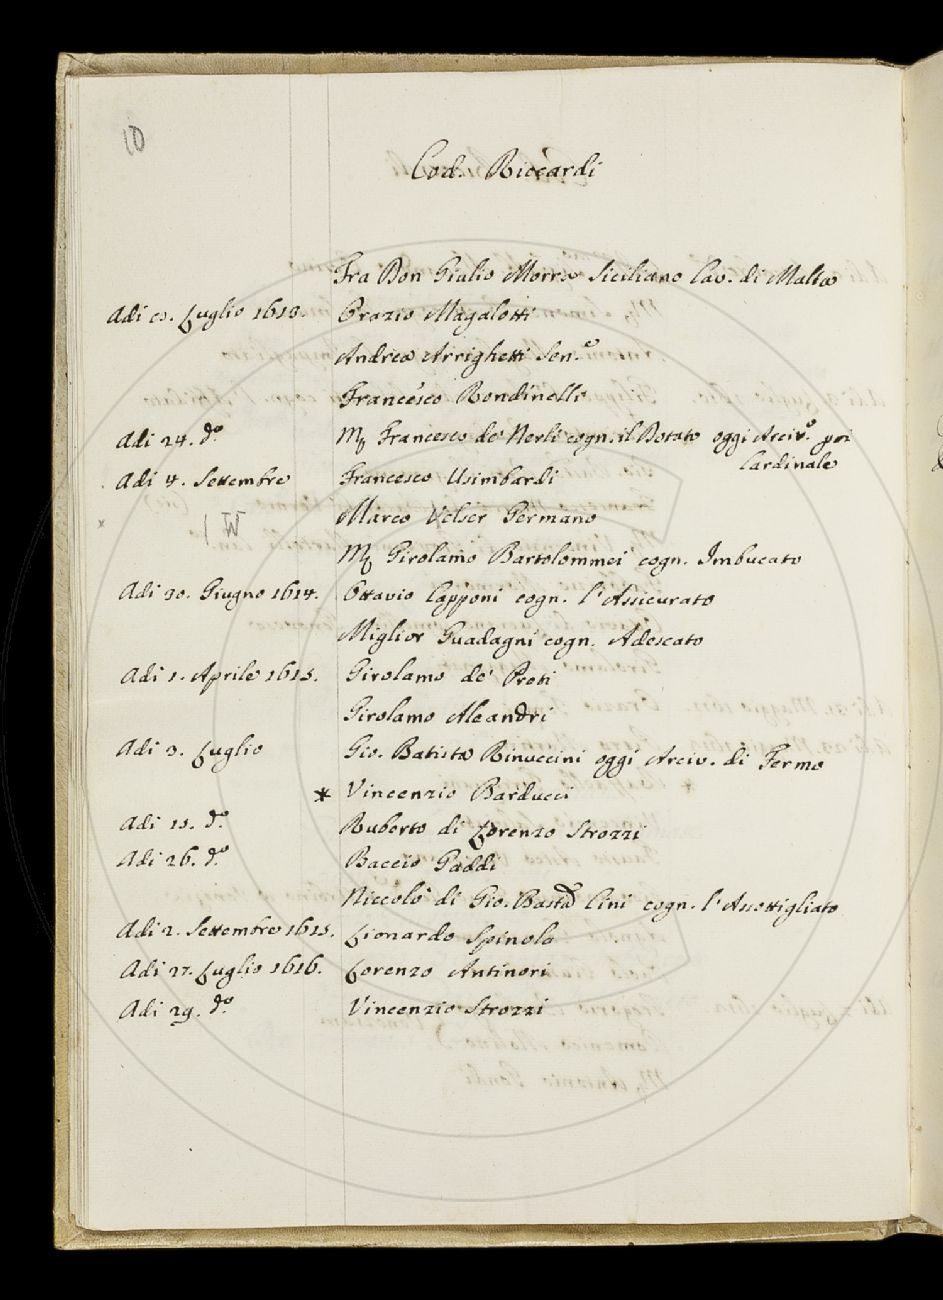 10
Cod. Riccardi
Fra Don Giulio Morra Siciliano Cav. di Malta
Adi Luglio 1613. Orazio Magalotti
Andrea Arrighetti Sen.e
Francesco Rondinelli
Adi 24. do. Mr Francesco de' Nerli cogn. il Dotato oggi Arciv.o poi
Cardinale
Adi 4. Settembre Francesco Usimbardi
Marco Velser Germano
| W
Mr Girolamo Bartolommei cogn. Imbucato
Adi 20. Giugno 1614. Ottavio Capponi cogn. l'Assicurato
Miglior Guadagni cogn. Adescato
Adi 1. Aprile 1615. Girolamo de' Preti
Girolamo Aleandri
Adi 3. Luglio Gio. Batista Rinuccini oggi Arciv. di Fermo
* Vincenzio Barducci
Adi 15. do. Ruberto di Lorenzo Strozzi
Adi 26. do. Baccio Gaddi
Niccolò di Gio. Batta Cini cogn. l'Assottigliato
Adi 2. Settembre 1615. Lionardo Spinola
Adi 27. Luglio 1616. Lorenzo Antinori
Adi 29. do. Vincenzio Strozzi